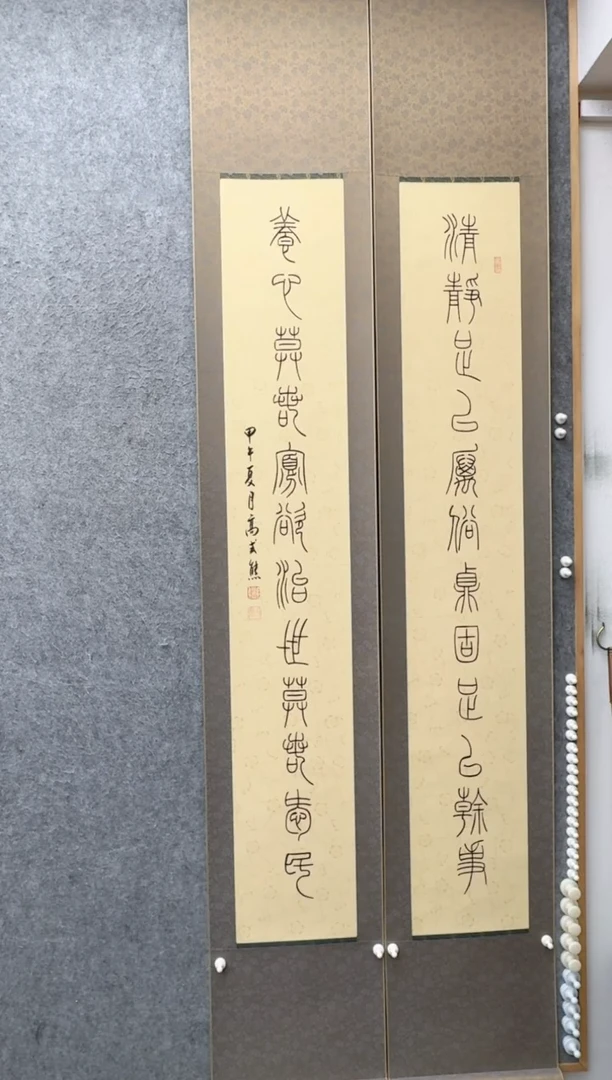 清靜足以厲俗貞固足以幹事
養心莫若寡欲治世莫若愛民
甲午夏月高式熊